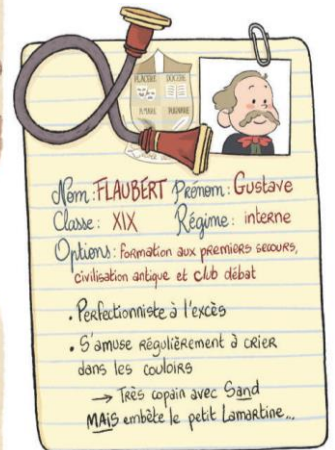 PLACERE DOCERE
Nom : FLAUBERT Prénom : Gustave
Classe : XIX Régime : interne
Options : formation aux premiers secours,
civilisation antique et club débat
• Perfectionniste à l'excès
• S'amuse régulièrement à crier
dans les couloirs
→ Très copain avec Sand
MAIS embête le petit Lamartine...